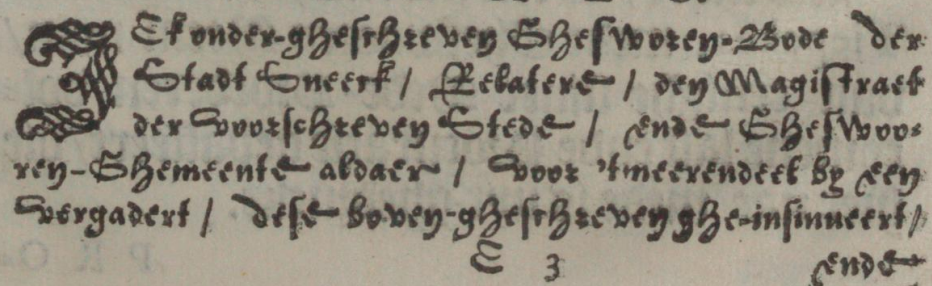 ICk onder-gheschreven Gheswoꝛen-Bode der
Stadt Sneeck / Relatere / den Magistraet
der voorschreven Stede / ende Gheswoo-
ren-Ghemeente aldaer / voor 'tmeerendeel by een
vergadert / dese boven-gheschreven ghe-insinueert /
E 3 ende